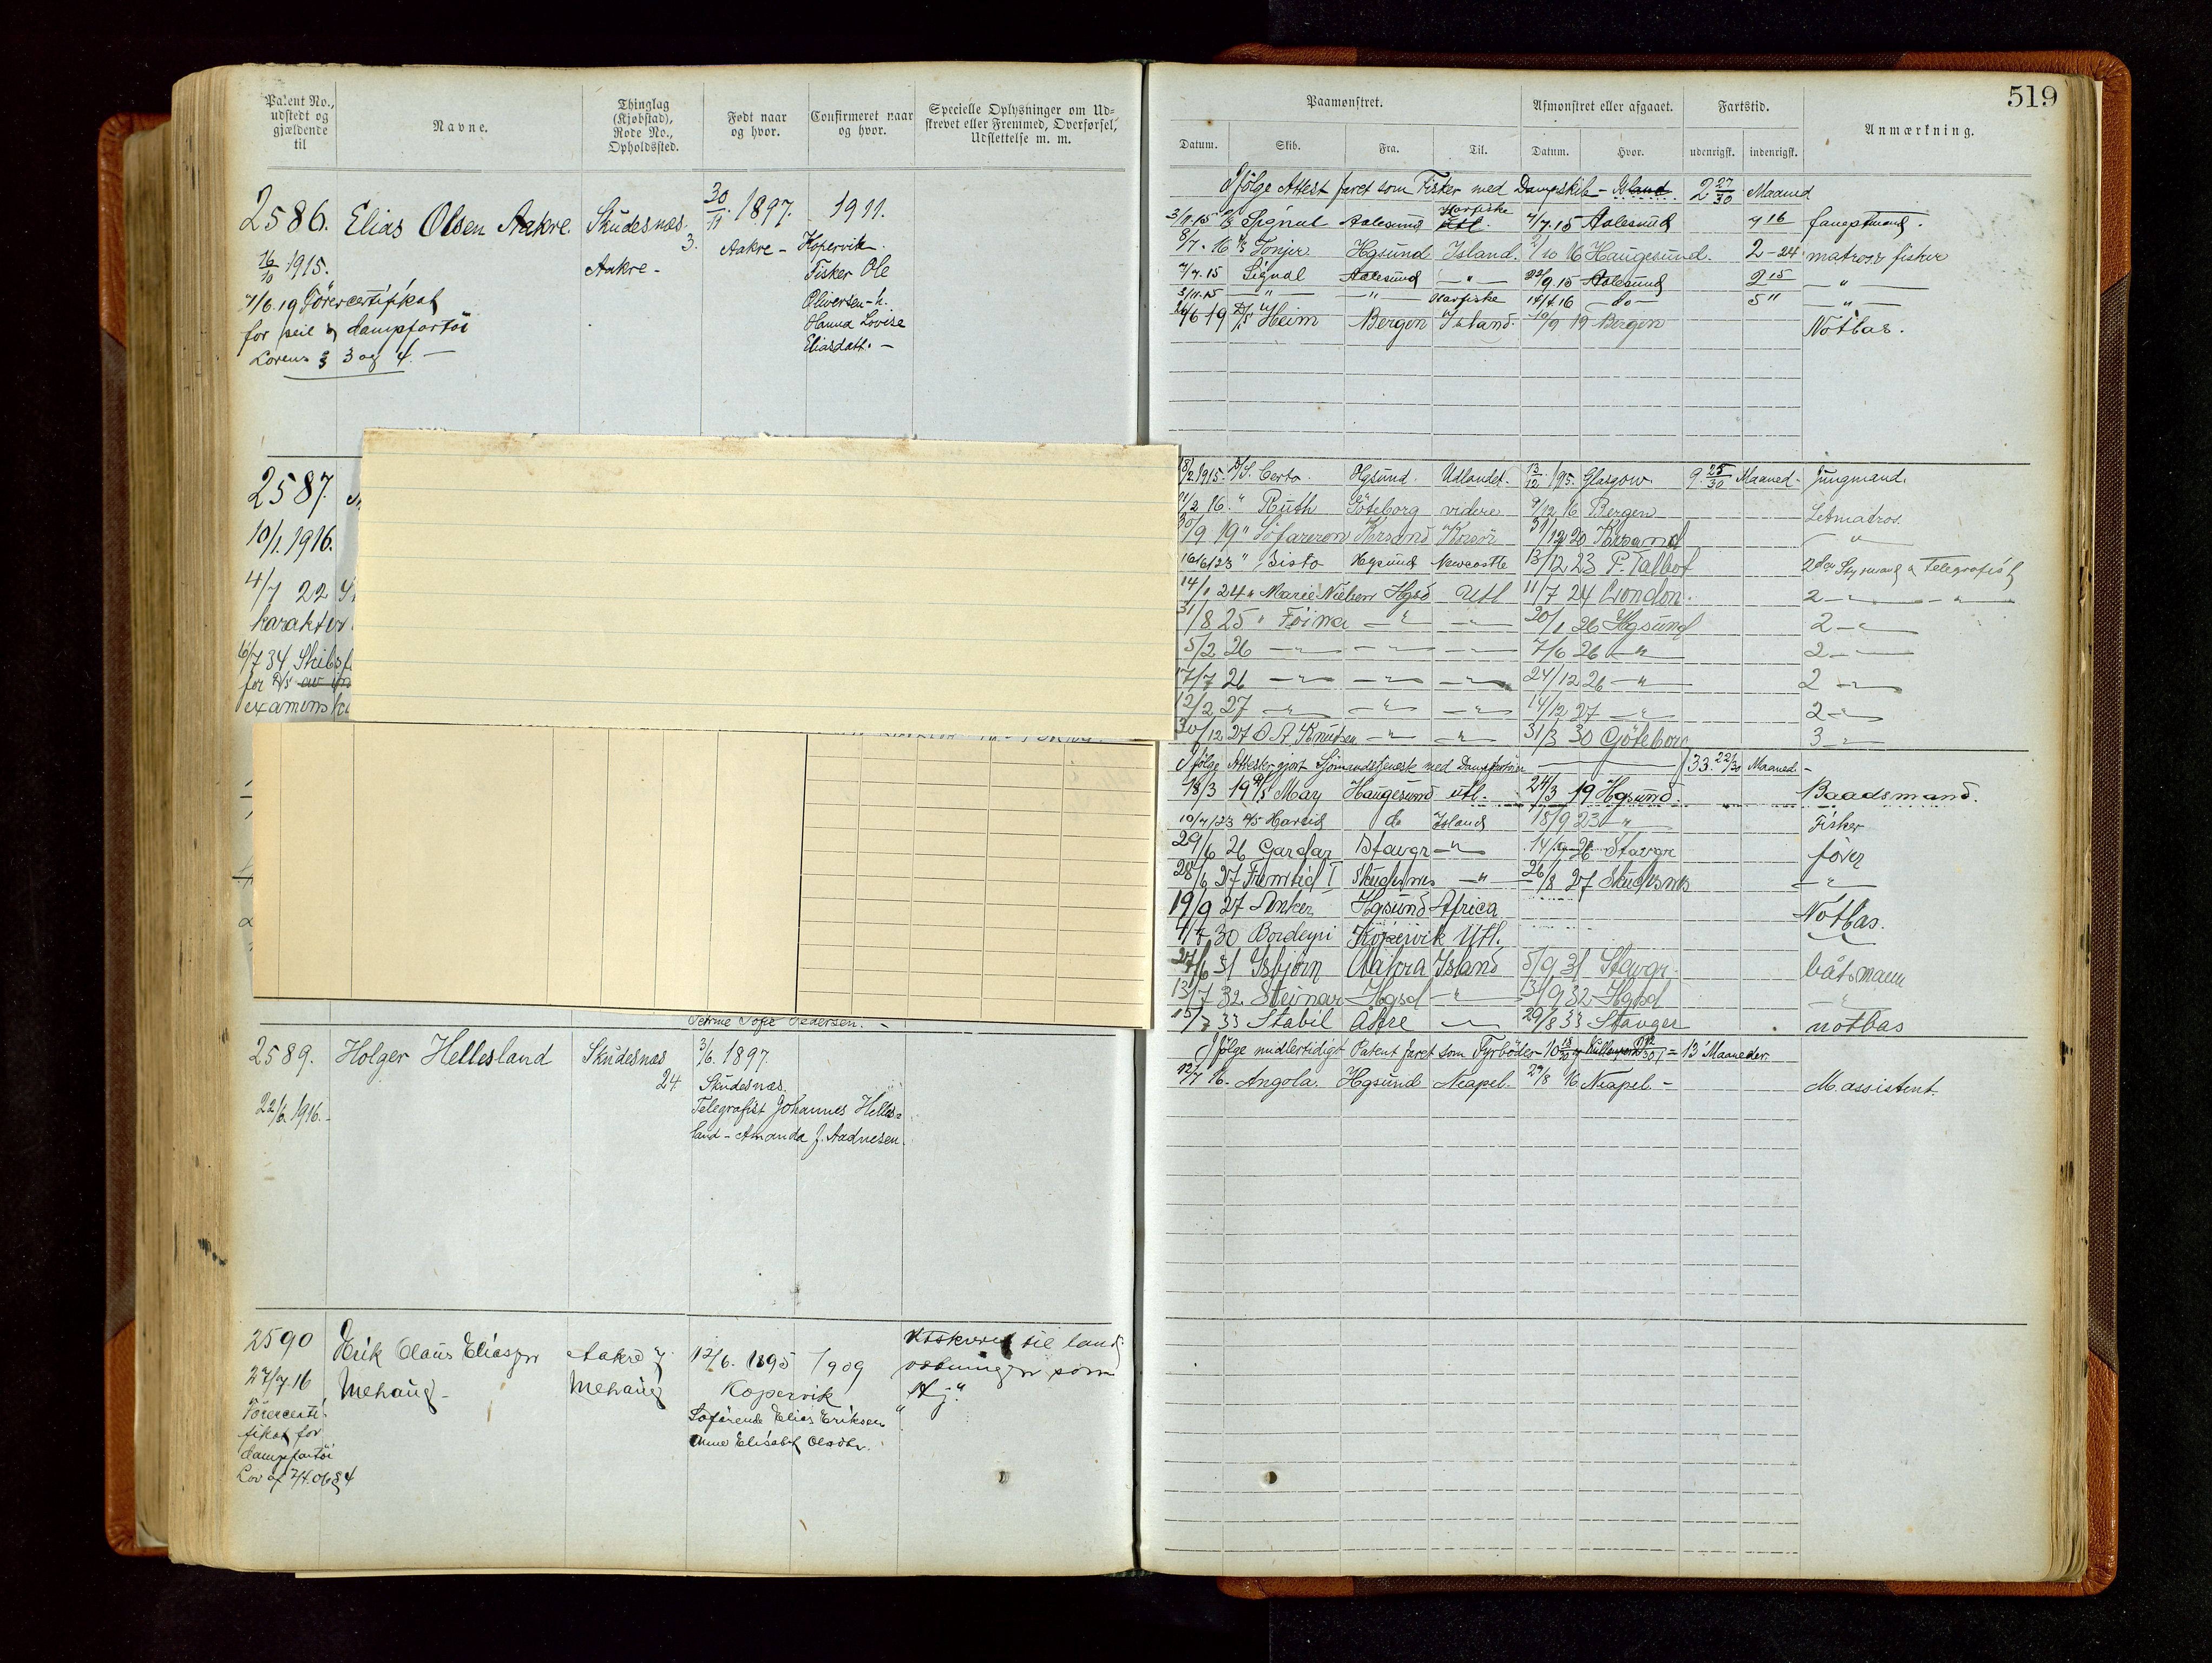 Patent No.,
udstedt og
gjældende
til
Navne.
Thinglag
(Kjøbstad),
Rode No.,
Opholdssted.
Født naar
og hvor.
Confirmeret naar
og hvor.
Specielle Oplysninger om Ud-
skrevet eller Fremmed, Overførsel,
Udslettelse m. m.
2586. Elias Olsen Aakre. Skudesnæs. 30/11. 1897. 1911.
3.
16/10 1915. Aakre - Aakre - Kopervik.
Fisker Ole
Førercertifikat Oliversen - h.
for seil & dampfartøi Hanna Lovise
Lovens § 3 og 4. - Eliasdatt. -
2587.
10/1. 1916.
4/7 22
karakter
6/7 34 Skibsf
for
examens
2589. Holger Hellesland Skudesnæs 3/6. 1897.
24 Skudesnæs.
22/6 1916. - Telegrafist Johannes Helles=
land - Amanda J. Aadnesen.
2590 Erik Olaus Eliassen Aakre 7 12/6. 1895 1909 til land
27/7.16 Mehaug - Mehaug Kopervik som
Førercerti- Søfarende Elias Eriksen
fikat for Anne Elisabet Olsdtr.
dampfartøi
Lov af 7/4.06 § 4
519
Paamønstret.
Afmønstret eller afgaaet.
Fartstid.
Anmærkning.
Datum. Skib. Fra. Til. Datum. Hvor. udenrigsk. indenrigsk.
Ifølge Attest faret som Fisker med Dampskib - Island 2 27/30 Maaned
3/11.15 Signal Aalesund Utl. 7/7.15 Aalesund 7 16
8/7. 16 Hgsund Island. 10 16 Haugesund. 2-24 matros & fisker
7/7.15 Signal Aalesund - " - 22/9.15 Aalesund 2 15 - " -
3/11.15 - " - - " - 14/4.16 - do - 5 " - " -
26/6 19 D/S Heim Bergen Island. 10/9 19 Bergen Notbas.
18/2 1915. D/S. Certo. Hgsund. Udlandet. 13/12. 1915. Glasgow. 9. 25/30 Maaned - Jungmand.
21/2 16. " Ruth Göteborg videre 9/12 16 Bergen Letmatros.
30/9 19 " Søfareren Krsand 31/12 20 Krsand - " -
16/6 23 " Sisto Hgsund Newcastle 13/12 23 P. Talbot 2den Styrmand & Telegrafist
14/1 24 " Marie Nielsen Hgsd Utl 11/7 24 London. 2 - " -
31/8 25 " Foina - " - - " - 20/1 26 Hgsund 2 - " -
5/2 26 - " - - " - - " - 7/6 26 - " - 2 - " -
17/7 26 - " - - " - - " - 24/12 26 - " - 2 - " -
12/2 27 - " - - " - - " - 14/12 27 - " - 2 - " -
30/12 27 O. A. Knudsen - " - - " - 31/3 30 Göteborg 3 - " -
Ifølge Attester gjort Sjømandstjeneste med Dampfartøier 33. 22/30 Maaned -
18/3 19 D/S May Haugesund utl. 24/3 19 Hgsund. Baadsmand.
10/7 23 D/S Hareid do Island 15/9 23 - " - Fisker
29/6 26 Gardar Stavgr - " - 14/9 26 Stavgr fører
28/6 27 Fremtid I Skudesnes - " - 26/8 27 Skudesnes - " -
19/9 27 Anker Hgsund Africa Notbas.
4/7 30 Bordeyri Kopervik Utl.
27/6 31 Isbjørn Aakra Island 5/9 31 Stavgr. båtsmann
13/7 32 Steinar Hgsd - " - 13/9 32 Hgsd - " -
15/7 33 Stabil Akre - " - 29/8 33 Stavger notbas
Ifølge midlertidigt Patent faret som Fyrbøder - 10 18/30 = 13 Maaneder.
12/7 16. Angola. Hgsund Neapel 29/8 16 Neapel - M. assistent.